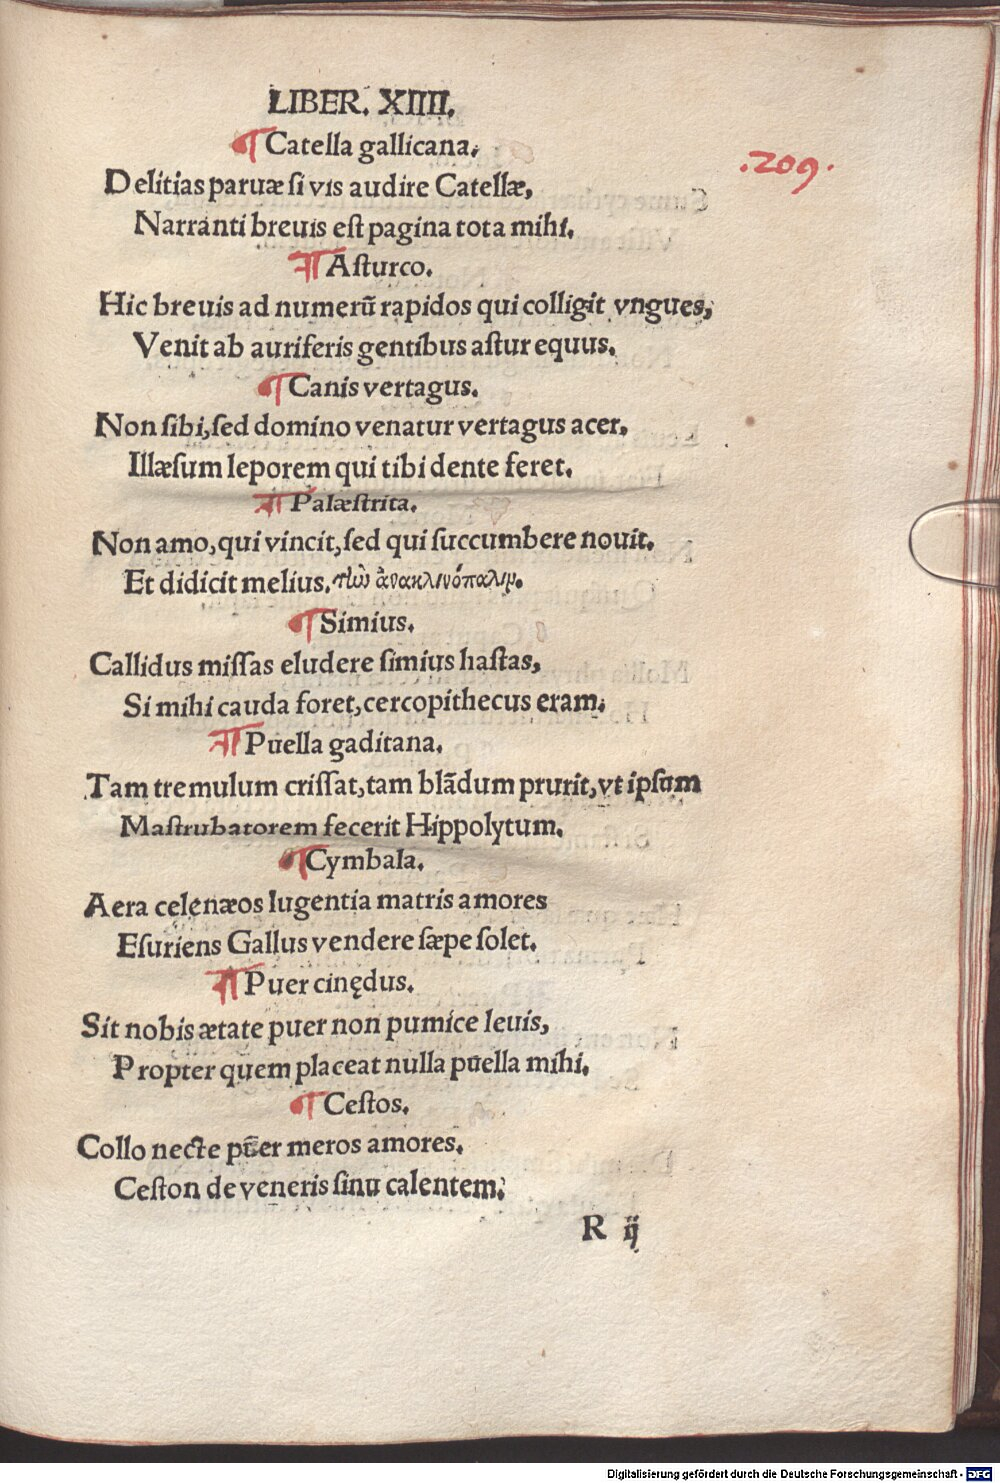 LIBER. XIIII.
¶ Catella gallicana.
.209.
Delitias paruæ si vis audire Catellæ,
Narranti breuis est pagina tota mihi.
¶ Asturco.
Hic breuis ad numerū rapidos qui colligit vngues,
Venit ab auriferis gentibus astur equus.
¶ Canis vertagus.
Non sibi, sed domino venatur vertagus acer,
Illæsum leporem qui tibi dente feret.
¶ Palæstrita.
Non amo, qui vincit, sed qui succumbere nouit.
Et didicit melius. τὴν ἀνακλινόπαλιν.
¶ Simius.
Callidus missas eludere simius hastas,
Si mihi cauda foret, cercopithecus eram.
¶ Puella gaditana.
Tam tremulum crissat, tam blādum prurit, vt ipsum
Mastrubatorem fecerit Hippolytum.
¶ Cymbala.
Aera celenæos lugentia matris amores
Esuriens Gallus vendere sæpe solet.
¶ Puer cinędus.
Sit nobis ætate puer non pumice leuis,
Propter quem placeat nulla puella mihi.
¶ Cestos.
Collo necte puer meros amores.
Ceston de veneris sinu calentem.
R ij
Digitalisierung gefördert durch die Deutsche Forschungsgemeinschaft - DFG